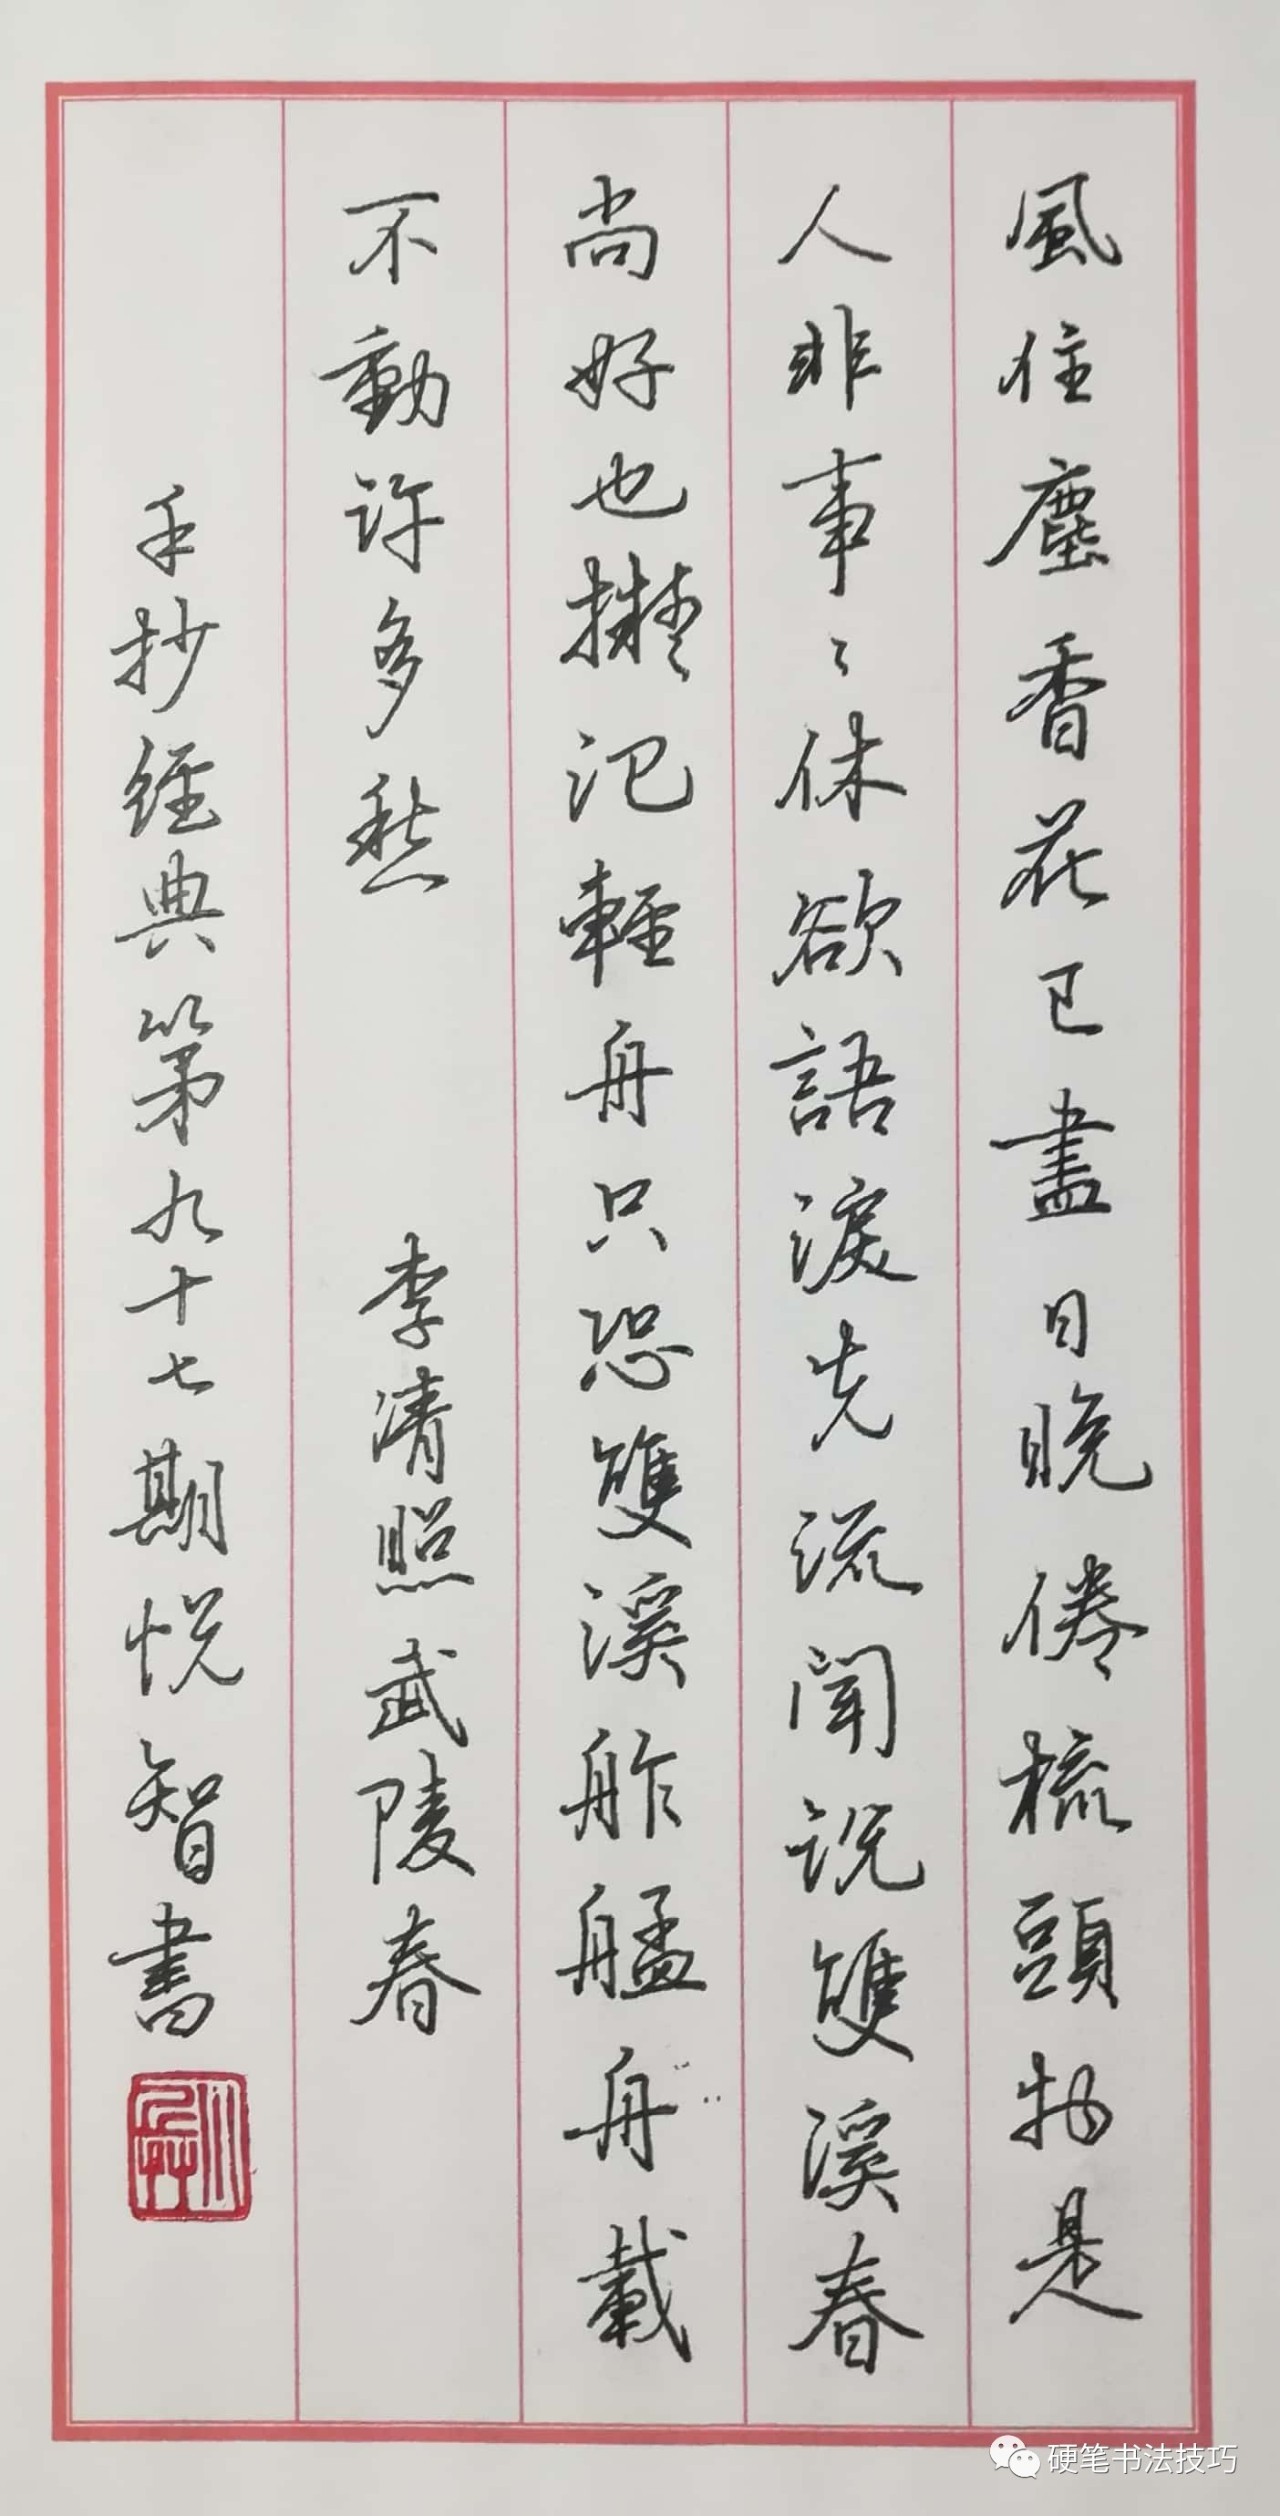 風住塵香花已盡日晚倦梳頭物是
人非事〻休欲語淚先流聞説雙溪春
尚好也擬泛輕舟只恐雙溪舴艋舟載
不動許多愁 李清照武陵春
手抄經典第九十七期悦智書
硬笔书法技巧